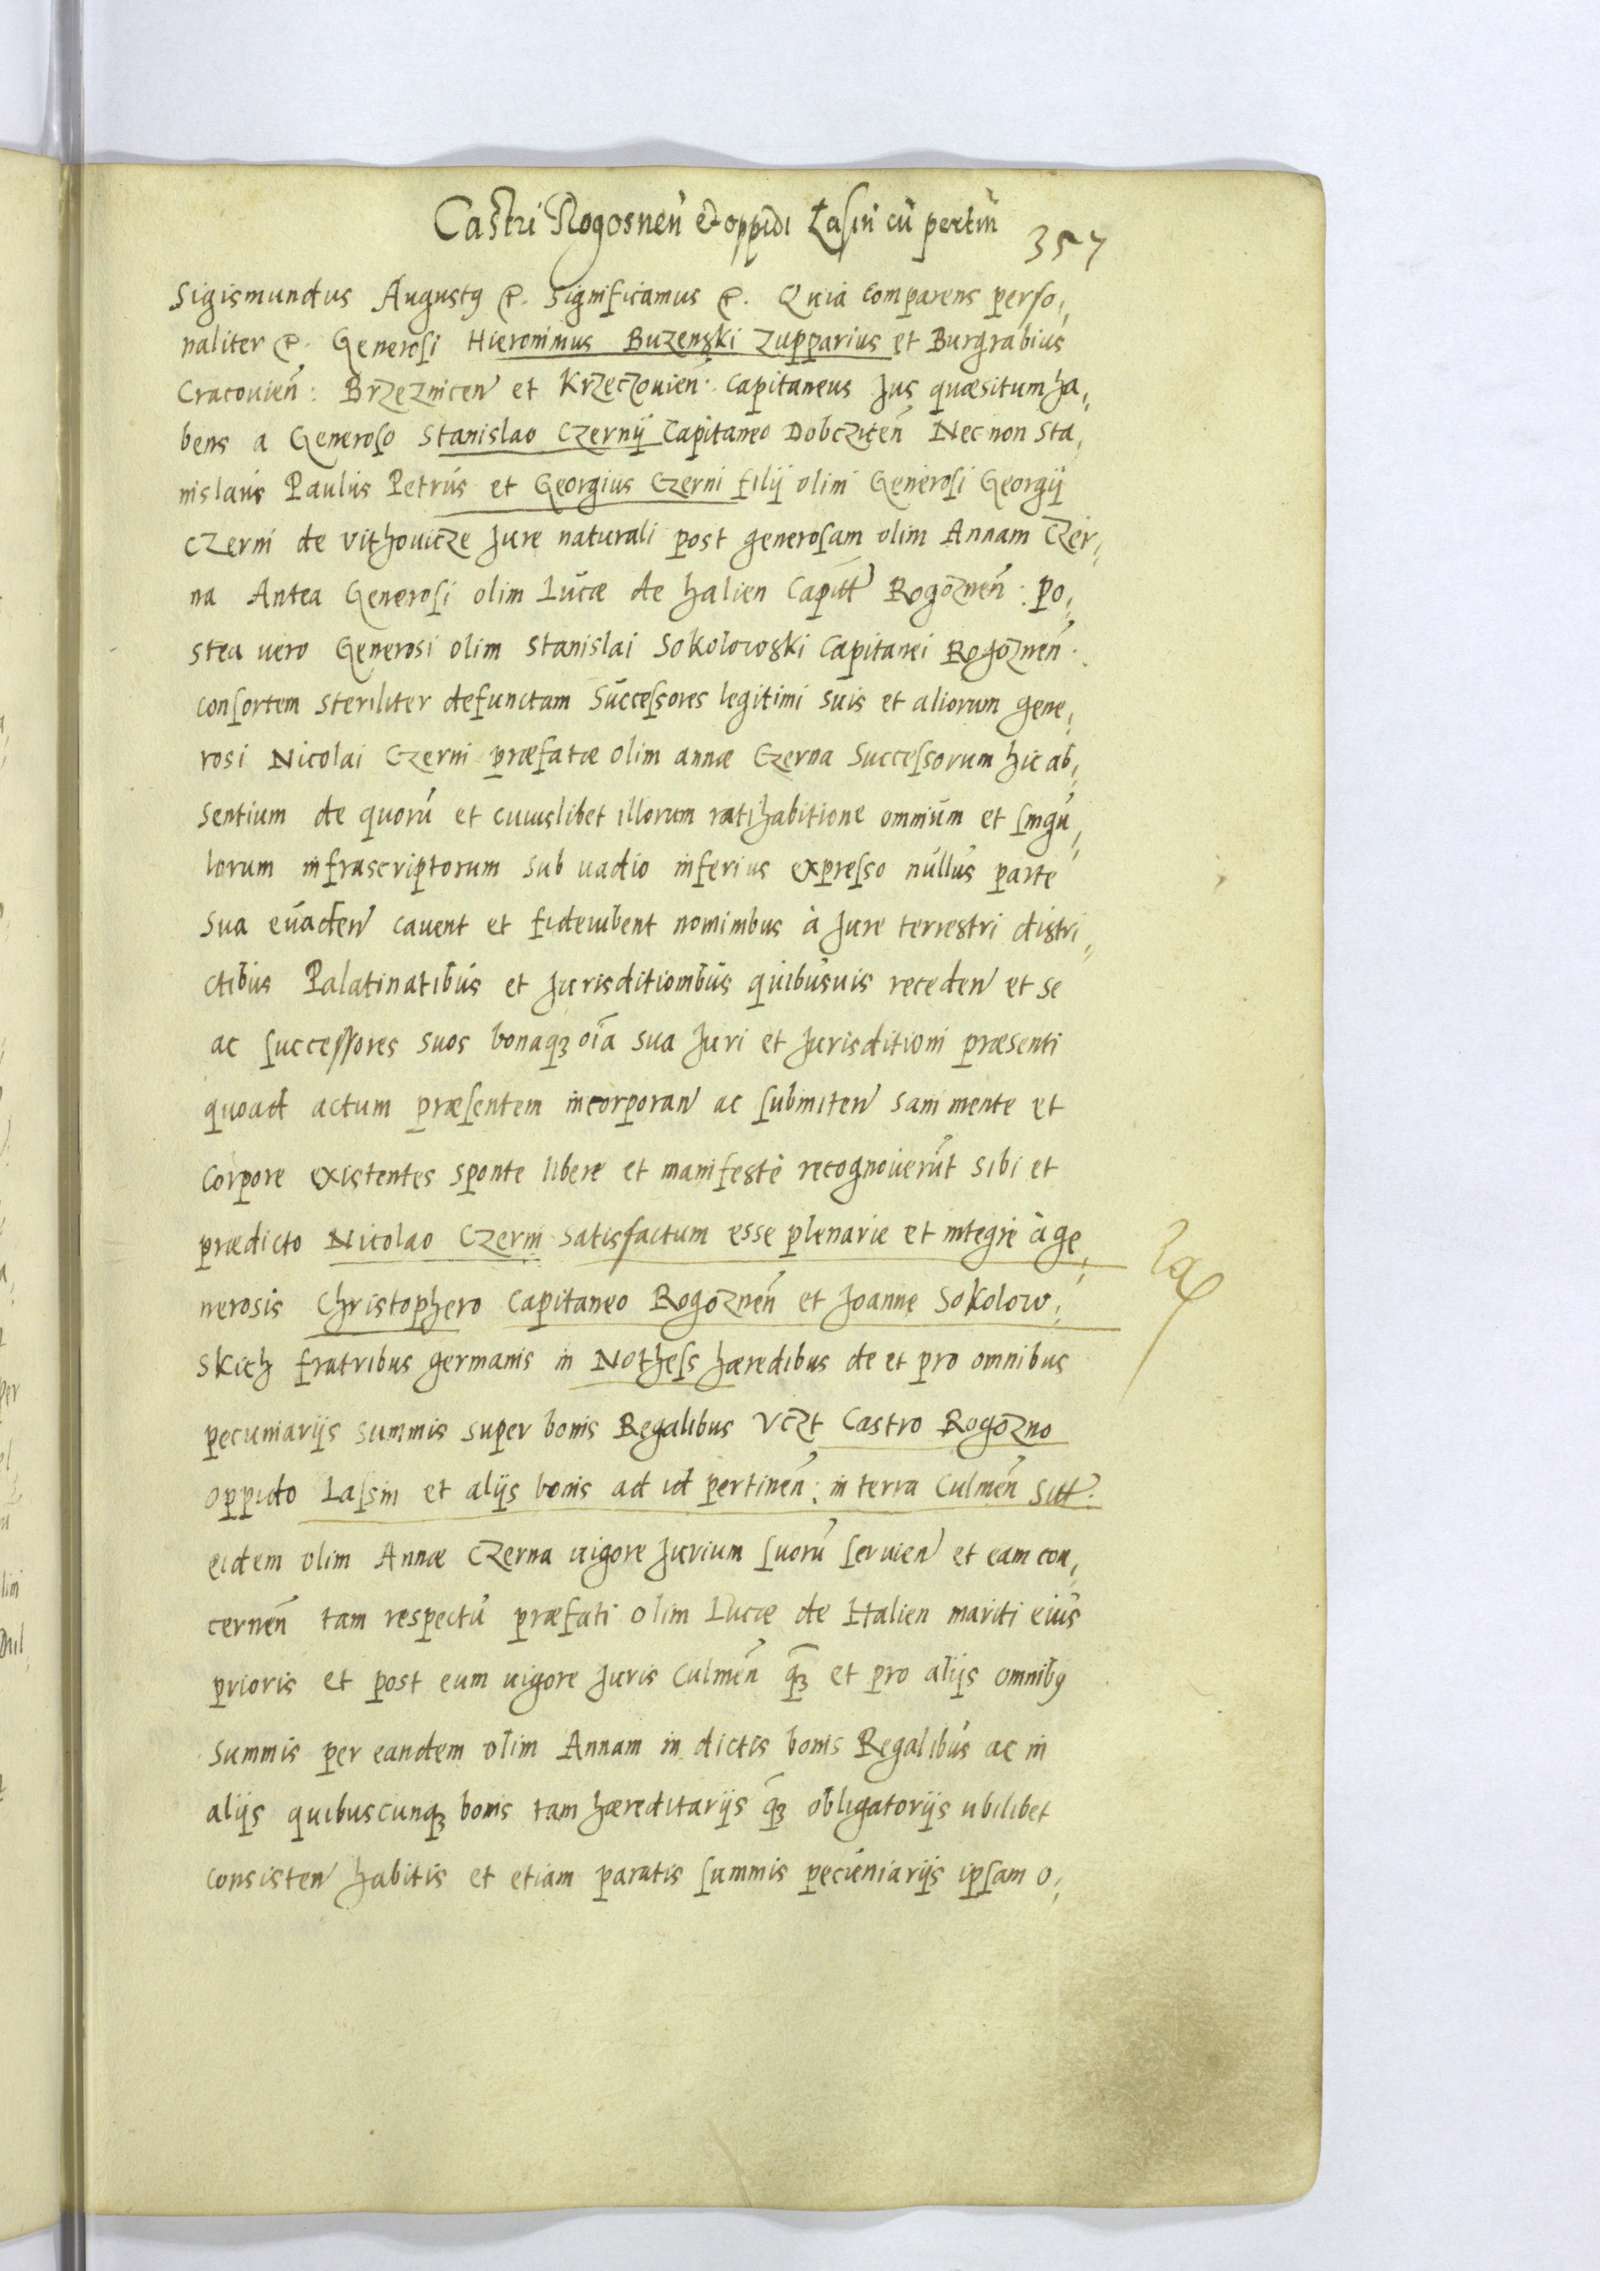 Castri Rogosnen̄ et oppidi Łasin cū pertin̄
357
Sigismundus Augustꝯ etc. Significamus etc. Quia comparens perso,
naliter etc. Generosi Hieronimus Buzenski Zupparius et Burgrabius
Cracouien̄: Brzeznicen̄ et Krzeczouien̄. Capitaneus Jus quæsitum ha,
bens a Generoso Stanislao Czernij Capitaneo Dobcziten̄ Nec non Sta,
nislaus Paulus Petrus et Georgius Czerni filij olim Generosi Georgij
Czerni de Vithouicze Jure naturali post generosam olim Annam Czer,
na Antea Generosi olim Lucæ de Halien Capitt Rogoznen̄: Po,
stea uero Generosi olim Stanislai Sokolowski Capitanei Rogoznen̄.
consortem steriliter defunctam Successores legitimi suis et aliorum gene,
rosi Nicolai Czerni præfatæ olim annæ Czerna Successorum hic ab,
sentium de quorū et cuiuslibet illorum ratihabitione omnium et singu,
lorum infrascriptorum sub uadio inferius expresso nullus parte
sua euaden̄ cauent et fideiubent nominibus à Jure terrestri distri,
ctibus Palatinatibus et Jurisditionibus quibusuis receden̄ et se
ac successores suos bonaqꝫ oīa sua Juri et Jurisditioni præsenti
quoad actum præsentem incorporan̄ ac submiten̄ sani mente et
Corpore existentes sponte libere et manifestè recognouerūt sibi et
prædicto Nicolao Czerni satisfactum esse plenarie et integre à ge,
nerosis Christophero Capitaneo Rogoznen̄ et Joanne Sokolow,
skich fratribus germanis in Nothess hæredibus de et pro omnibus
pecuniarijs summis super bonis Regalibus Vczt Castro Rogozno
oppido Lassin et alijs bonis ad id pertinen̄: in terra Culmen̄ Sitt.
eidem olim Annæ Czerna uigore Jurium suorū seruien̄ et eam con,
cernen̄ tam respectu præfati olim Lucæ de Halien mariti eius
prioris et post eum uigore Juris Culmen̄ qꝫ̄ et pro alijs omnibꝯ
Summis per eandem olim Annam in dictis bonis Regalibus ac in
alijs quibuscunqꝫ bonis tam hæreditarijs qꝫ̄ obligatorijs ubilibet
consisten̄ habitis et etiam paratis summis pecuniarijs ipsam o,